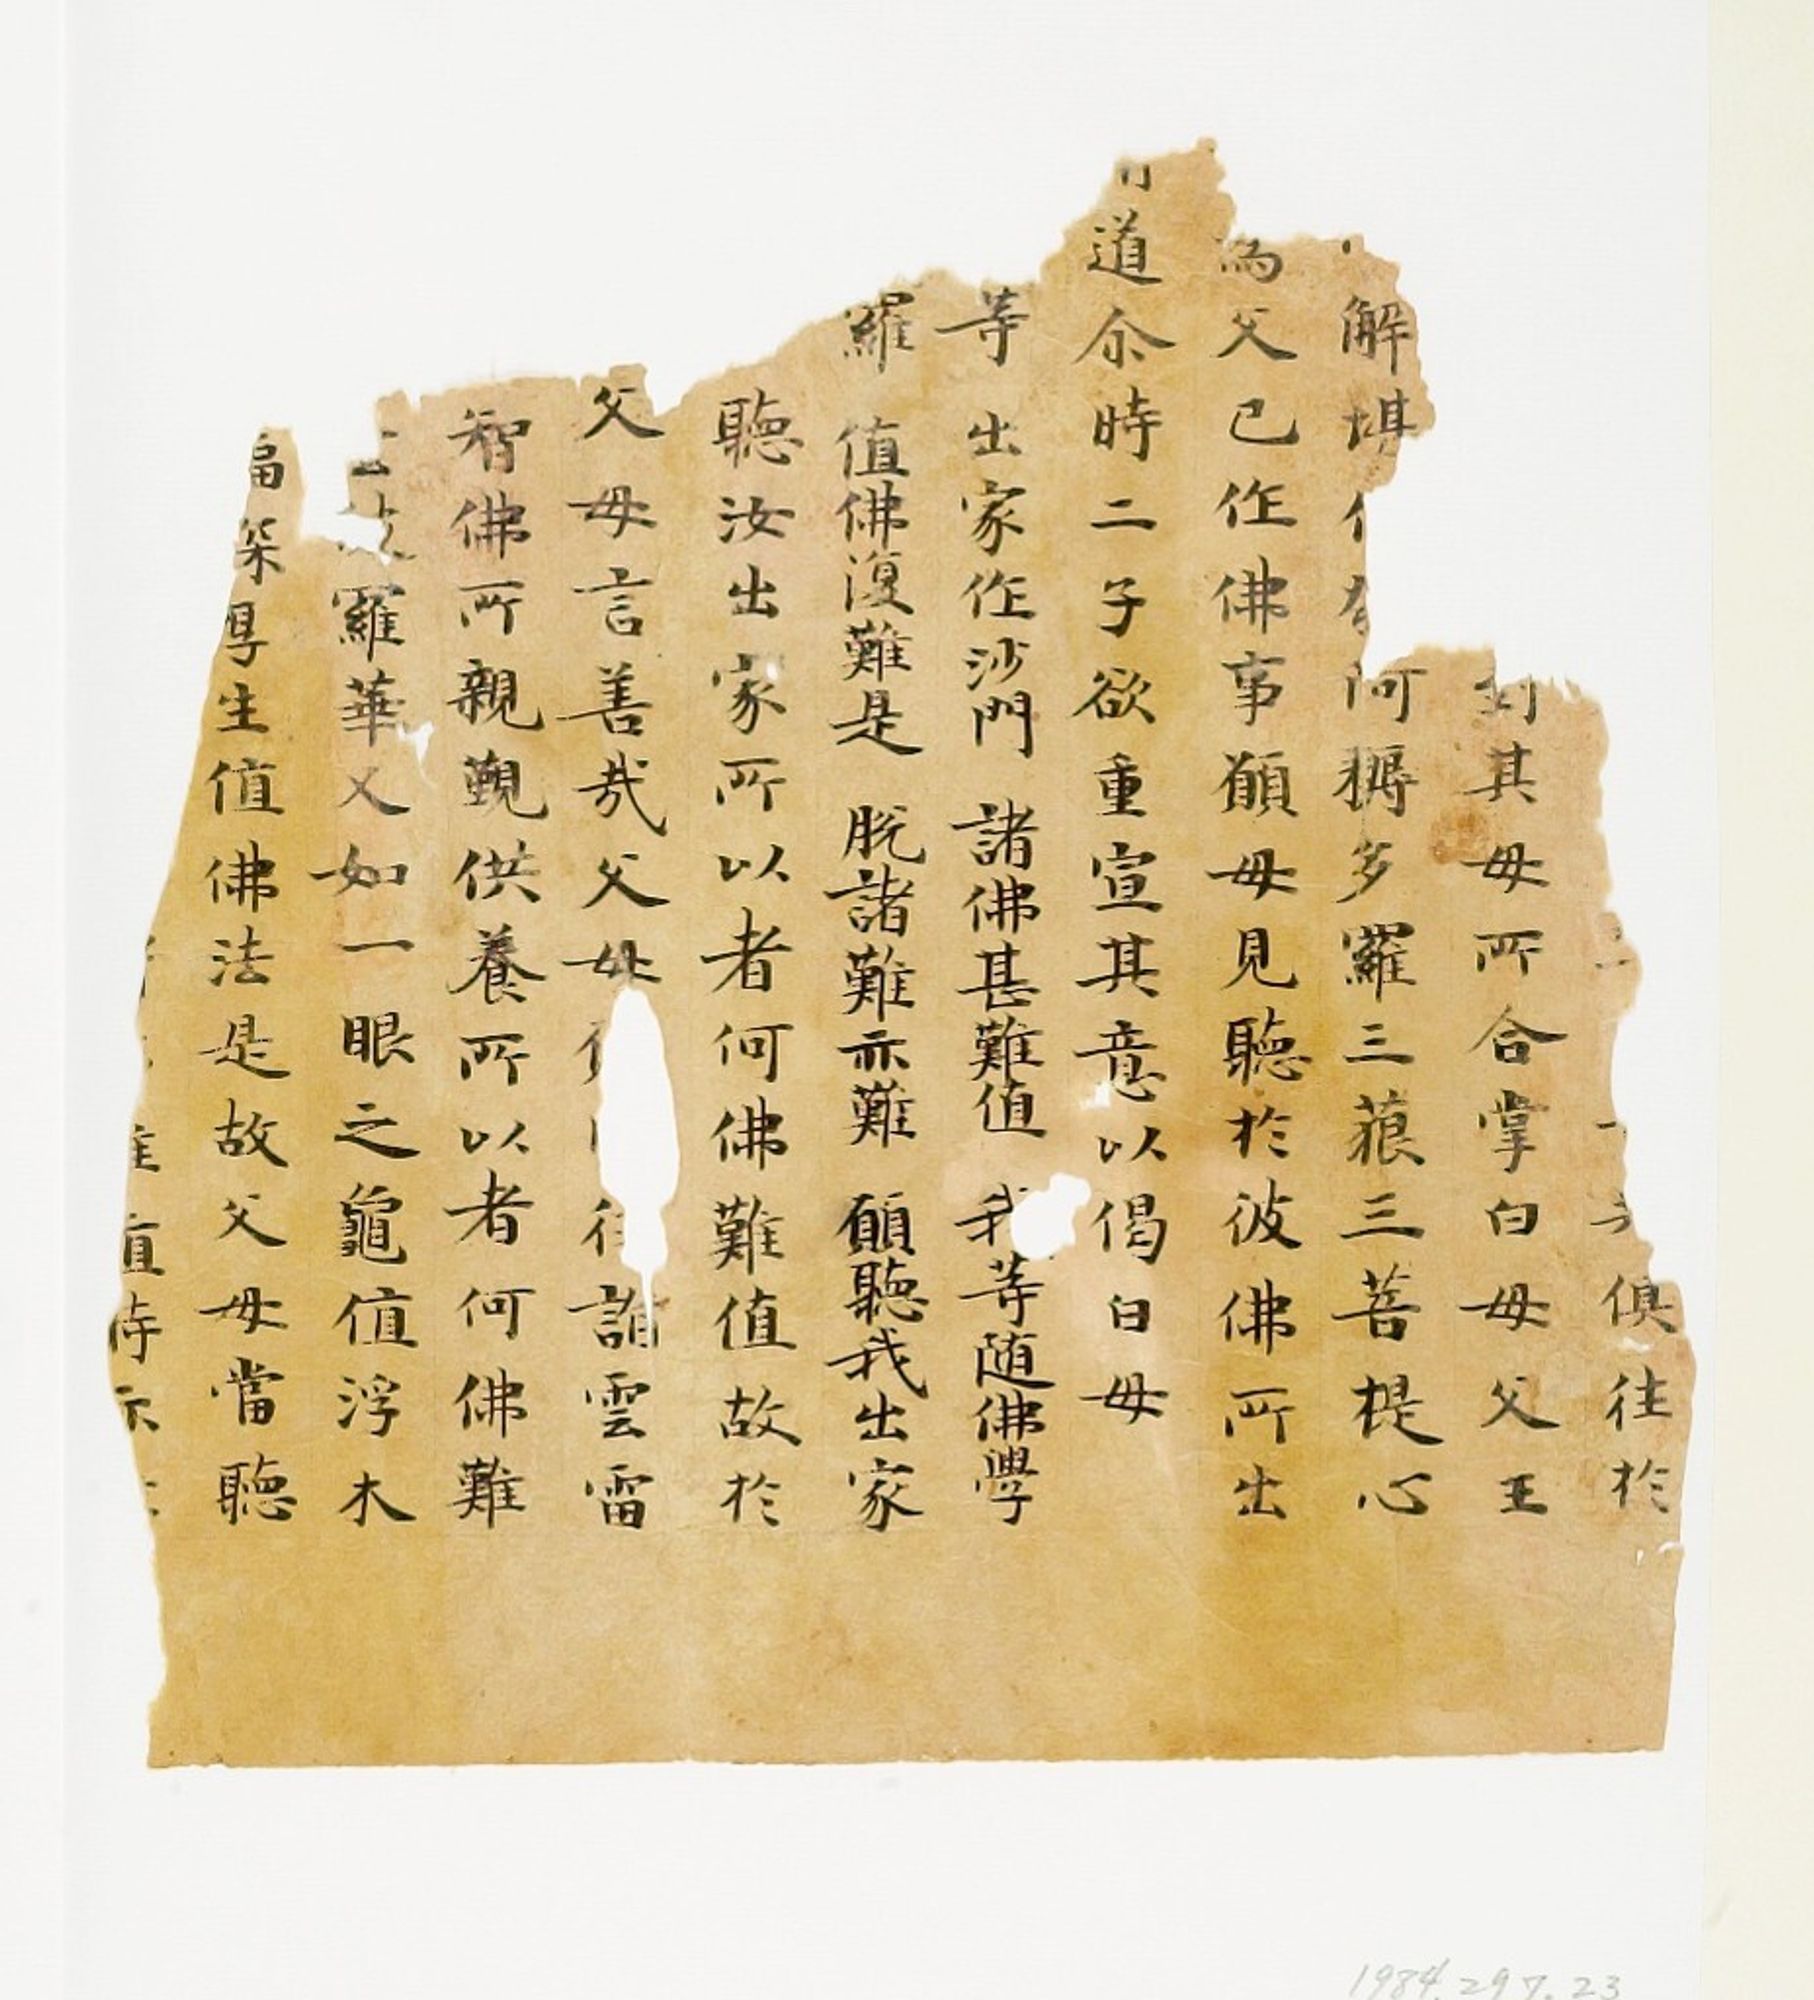 俱往於
到其母所合掌白母父王
解堪阿耨多羅三藐三菩提心
為父已作佛事願母見聽於彼佛所出
道尒時二子欲重宣其意以偈白母
等出家作沙門 諸佛甚難值 我等随佛學
羅值佛復難是 脫諸難亦難 願聽我出家
聽汝出家所以者何佛難值故於
父母言善哉父母往詣雲雷
智佛所親覲供養所以者何佛難
羅華又如一眼之龜值浮木
福深厚生值佛法是故父母當聽
難值時亦
1984.297.23